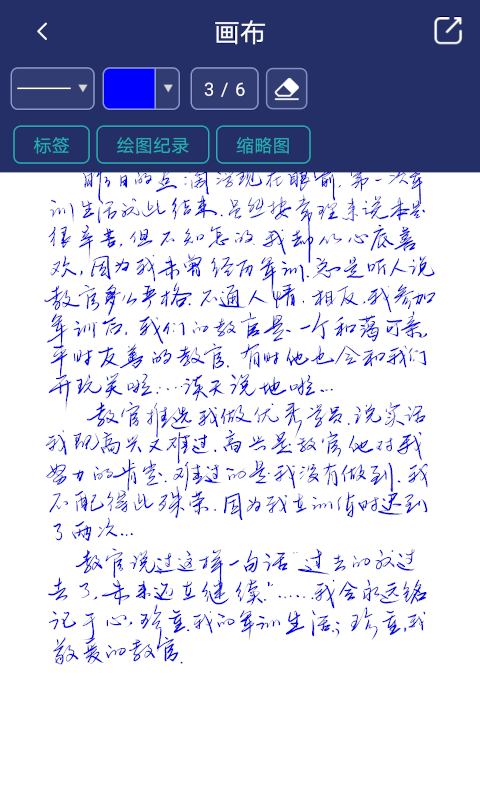 画布
3 / 6
标签 绘图纪录 缩略图
昨日的点滴浮现在眼前,第一次军
训生活就此结束,虽然按常理来说本是
很辛苦,但不知怎的我却从心底喜
欢,因为我未曾经历军训,总是听人说
教官多么严格,不通人情,相反,我参加
军训后,我们的教官是一个和蔼可亲,
平时友善的教官,有时他也会和我们
开玩笑啦…谈天说地啦…
教官推选我做优秀学员,说实话
我既高兴又难过,高兴是教官他对我
努力的肯定,难过的是我没有做到,我
不配得此殊荣,因为我在训保时迟到
了两次…
教官说过这样一句话"过去的放过
去了,未来还在继续"……我会永远铭
记于心,珍重,我的军训生活;珍重,我
敬爱的教官.